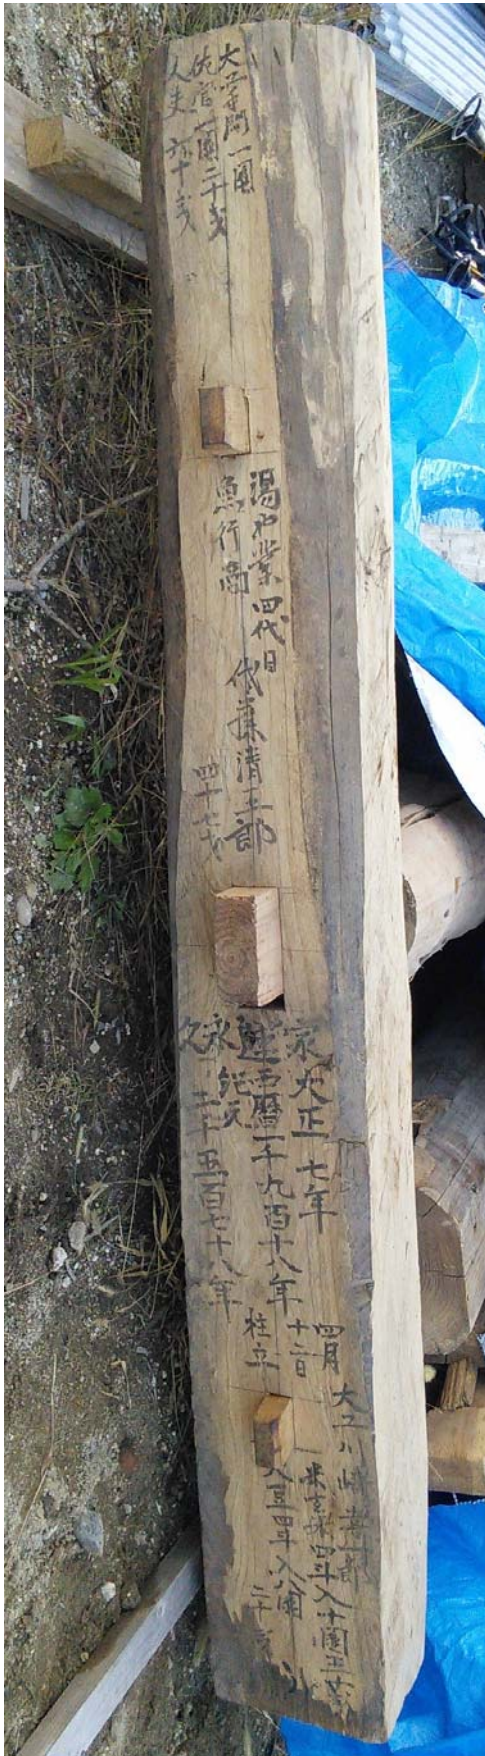 大工手間一圓
佐官一圓二十戋
人夫 六十戋
湯や業 四代目
魚行商
佐藤清五郎
四十七才
家 大正七年
運 西暦一千九百十八年
永 紀元
久 二千五百七十八年
四月
十二日
柱立
大工 川崎
一 米玄米四斗入十圓五十戋
大豆四斗入八圓
二十戋